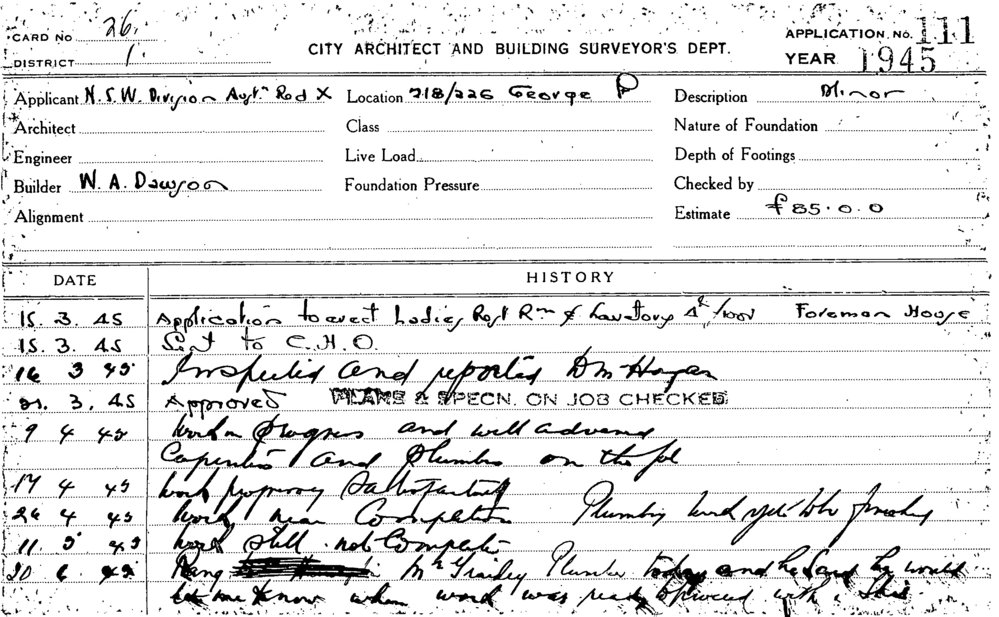 CARD NO 26.
DISTRICT 1
CITY ARCHITECT AND BUILDING SURVEYOR'S DEPT.
APPLICATION. No. 111
YEAR 1945
Applicant N.S.W. Division Aust'n Red X Location 218/226 George P Description Minor
Architect Class Nature of Foundation
Engineer Live Load Depth of Footings
Builder W. A. Dawson Foundation Pressure Checked by
Alignment Estimate £85.0.0
DATE HISTORY
15. 3. 45 Application to erect Ladies Rest Rm & Lavatory 4th floor Foreman House
15. 3. 45 Sent to C.H.O.
16 3 45 Inspected and reported Hogan
21. 3. 45 Approved PLANS & SPECN. ON JOB CHECKED
9 4 45 Work in progress and well advanced
Carpenters and Plumbers on the job
17 4 45 Work progressing Satisfactorily
26 4 45 Work near Completion Plumbing work yet to be finished
11 5 45 Work still not Complete
20 6 45 Rang Mr Plumber today and he said he would
let me know when work was ready to proceed with. This